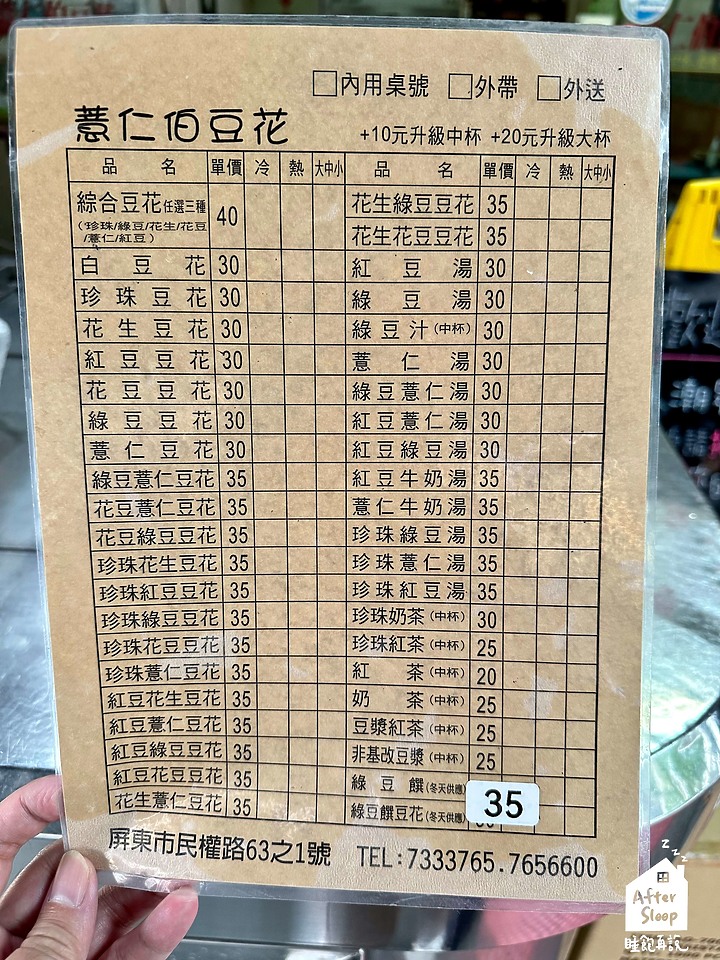 □內用桌號 □外帶 □外送
薏仁伯豆花
+10元升級中杯 +20元升級大杯
品名 單價 冷 熱 大中小 品名 單價 冷 熱 大中小
綜合豆花任選三種 40
(珍珠/綠豆/花生/花豆
/薏仁/紅豆)
花生綠豆豆花 35
花生花豆豆花 35
白豆花 30 紅豆湯 30
珍珠豆花 30 綠豆湯 30
花生豆花 30 綠豆汁(中杯) 30
紅豆豆花 30 薏仁湯 30
花豆豆花 30 綠豆薏仁湯 30
綠豆豆花 30 紅豆薏仁湯 30
薏仁豆花 30 紅豆綠豆湯 30
綠豆薏仁豆花 35 紅豆牛奶湯 35
花豆薏仁豆花 35 薏仁牛奶湯 35
花豆綠豆豆花 35 珍珠綠豆湯 35
珍珠花生豆花 35 珍珠薏仁湯 35
珍珠紅豆豆花 35 珍珠紅豆湯 35
珍珠綠豆豆花 35 珍珠奶茶(中杯) 30
珍珠花豆豆花 35 珍珠紅茶(中杯) 25
珍珠薏仁豆花 35 紅茶(中杯) 20
紅豆花生豆花 35 奶茶(中杯) 25
紅豆薏仁豆花 35 豆漿紅茶(中杯) 25
紅豆綠豆豆花 35 非基改豆漿(中杯) 25
紅豆花豆豆花 35 綠豆饌(冬天供應) 35
花生薏仁豆花 35 綠豆饌豆花(冬天供應)
屏東市民權路63之1號 TEL:7333765.7656600
z z z
After
Sleep
睡飽再說